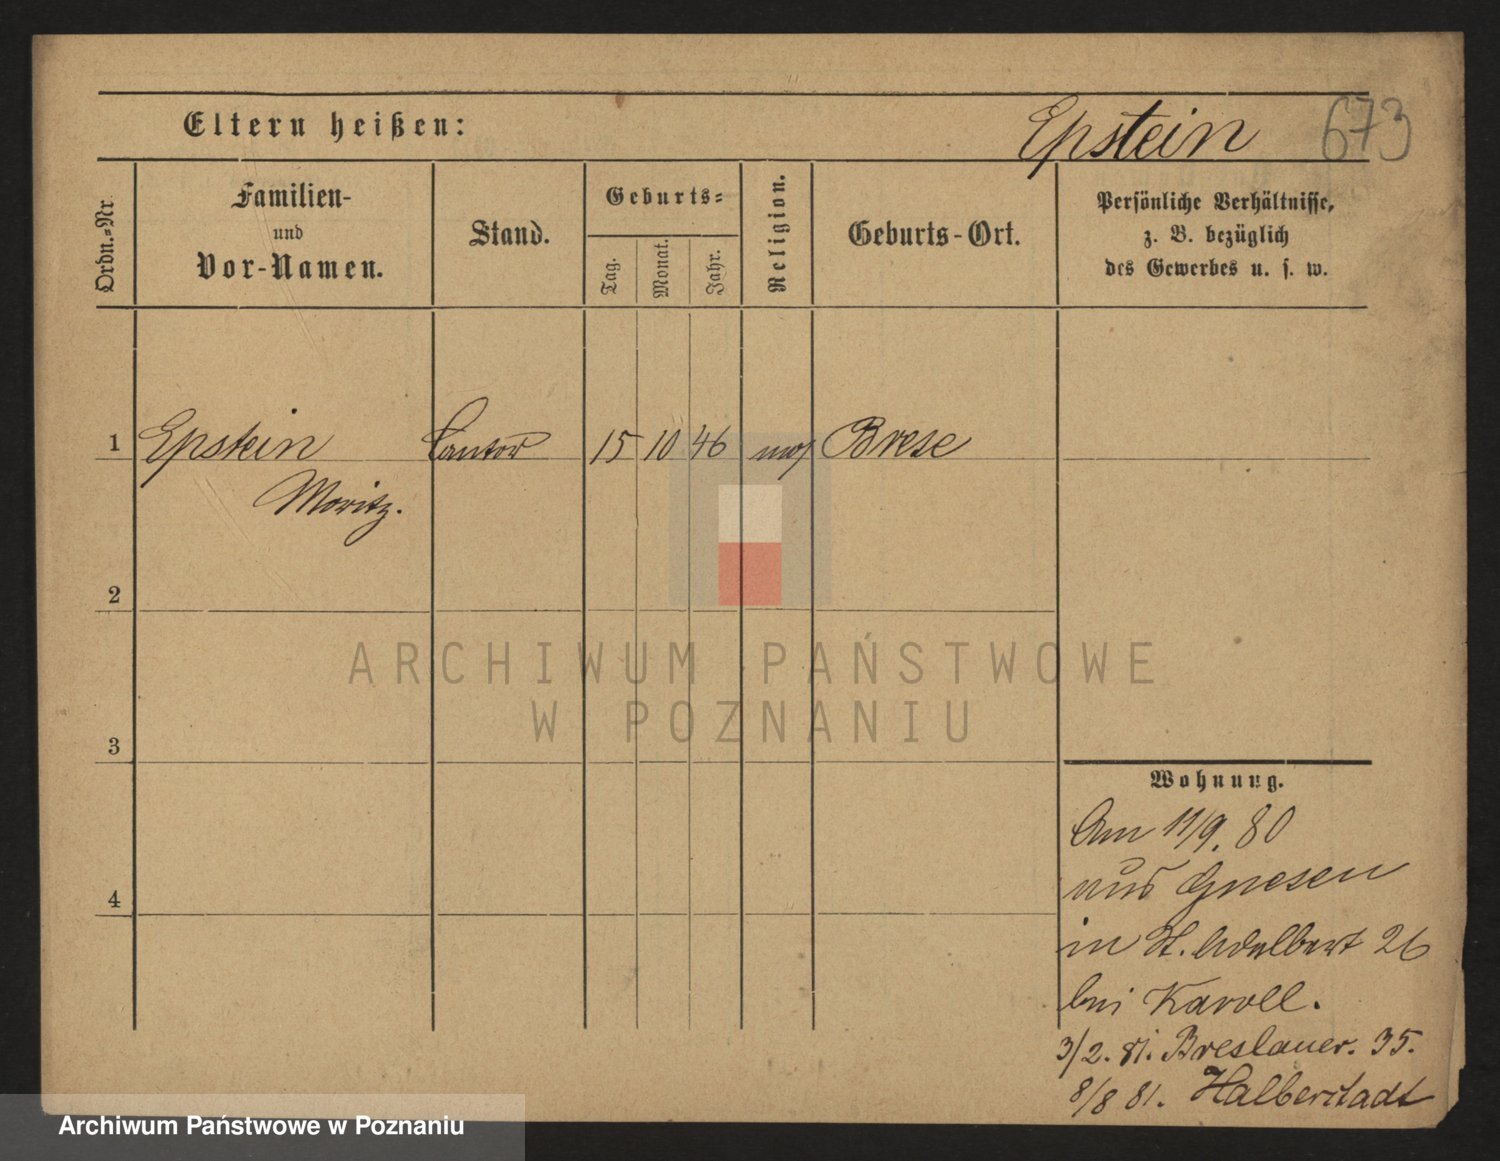 Eltern heißen:
Epstein 673
Ordn.-Nr.
Familien-
und
Vor-Namen.
Stand.
Geburts-
Tag.
Monat.
Jahr.
Religion.
Geburts-Ort.
Persönliche Verhältnisse,
z. B. bezüglich
des Gewerbes u. s. w.
1 Epstein Cantor 15 10 46 mos Brese
Moritz.
2
3
4
ARCHIWUM PAŃSTWOWE
W POZNANIU
Wohnung.
Am 11/9. 80
aus Gnesen
in St. Adalbert 26
bei Karoll.
3/2. 81. Breslauer. 35.
8/8 81. Halberstadt
Archiwum Państwowe w Poznaniu